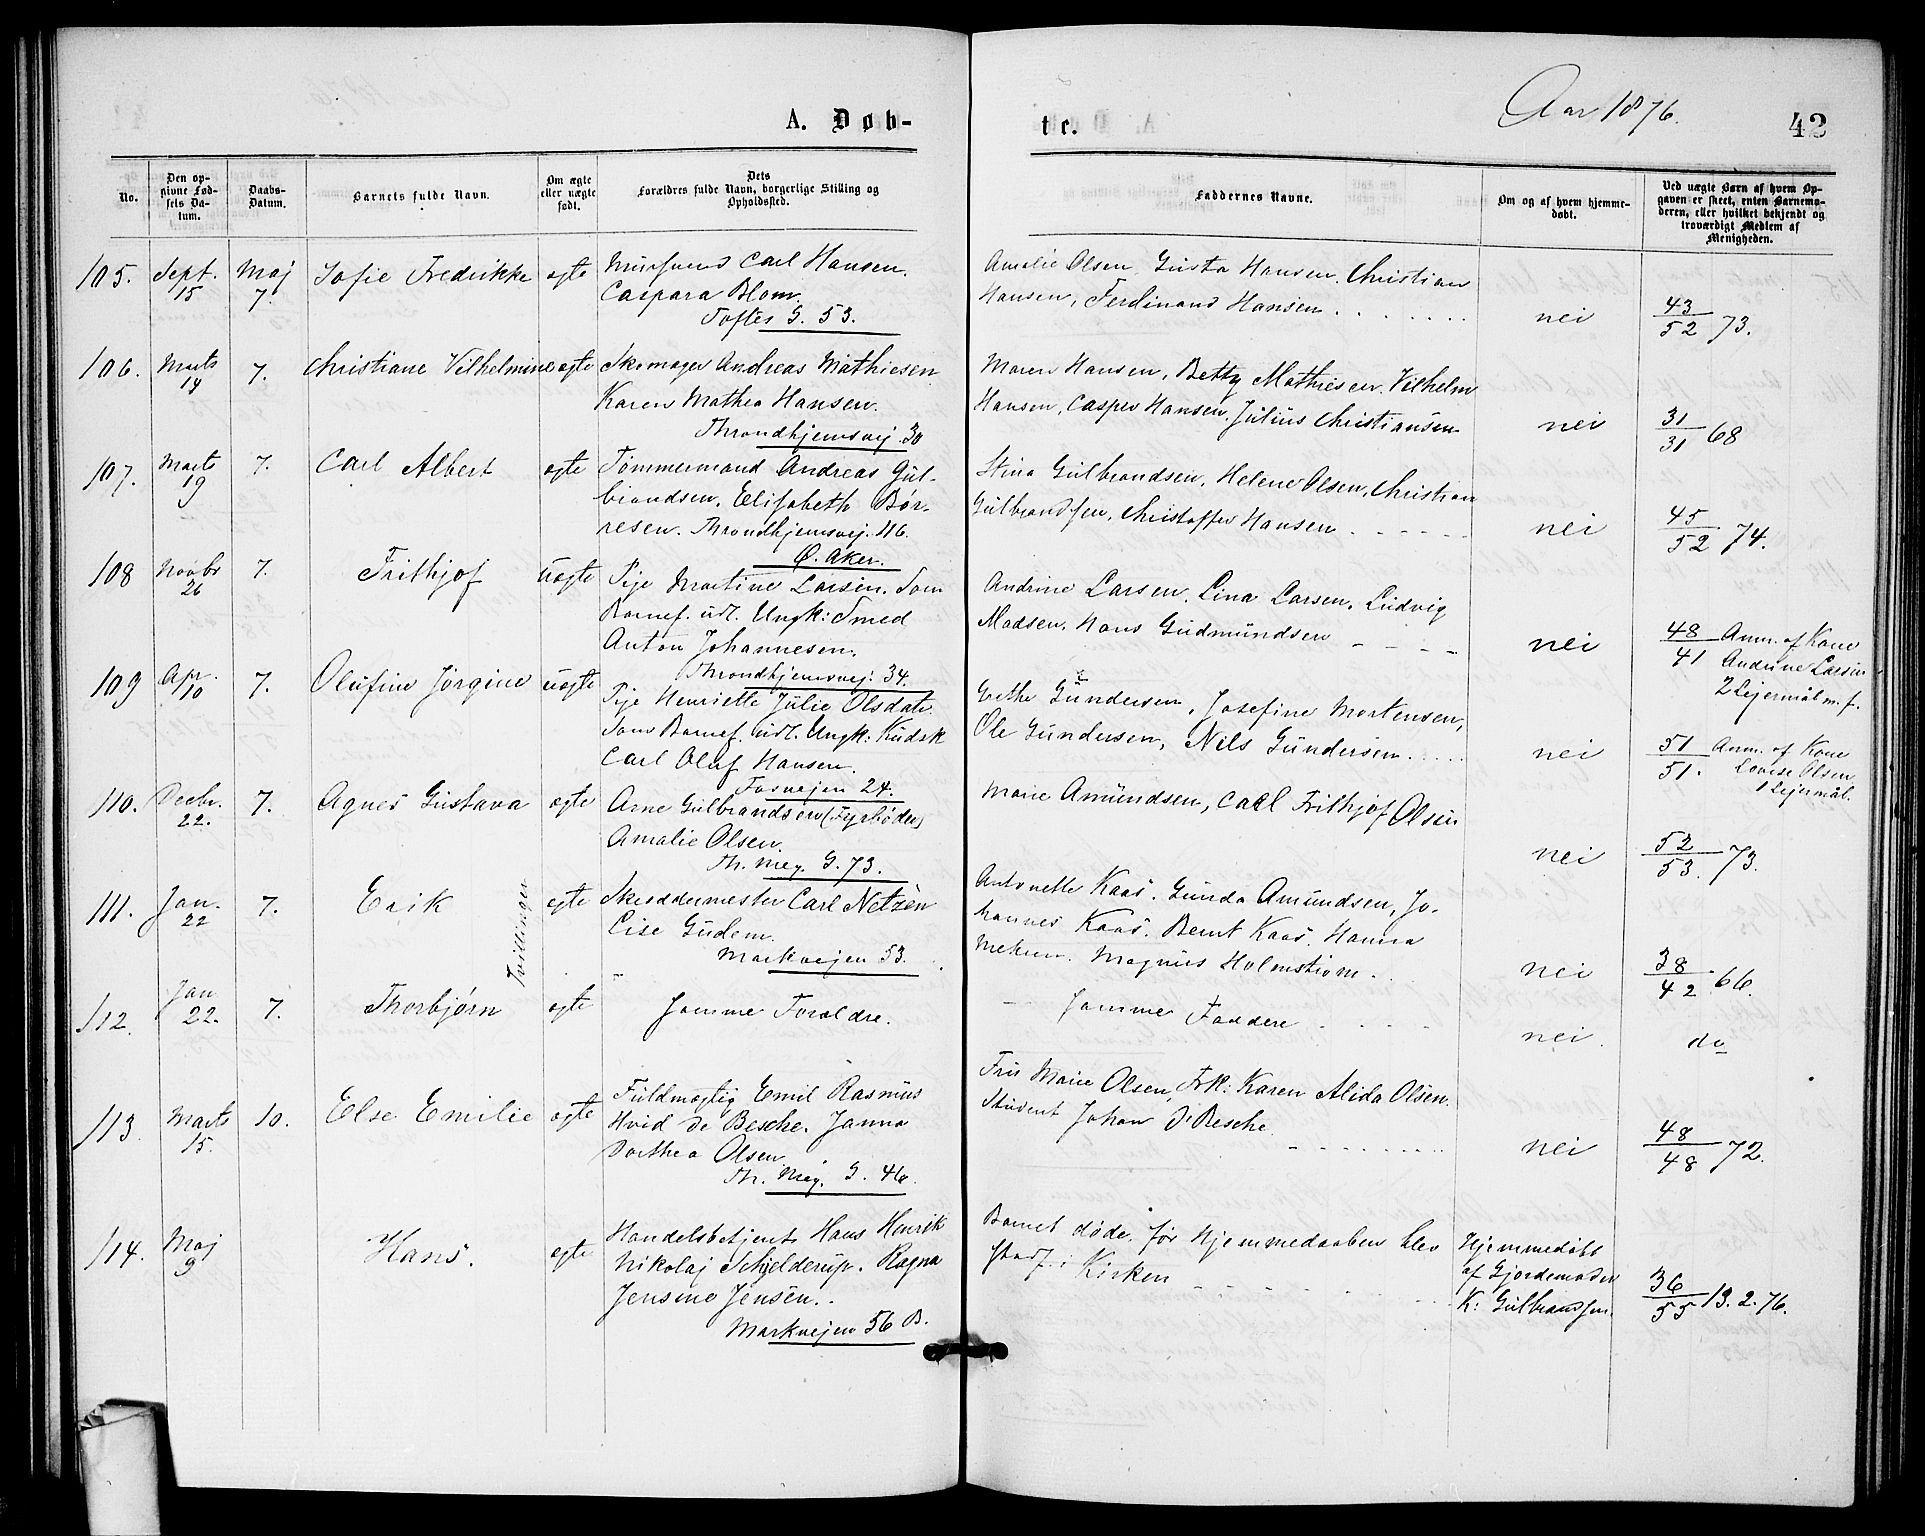 A. Døb-
No.
Den op-
givne Fød-
sels Da-
tum.
Daabs-
Datum.
Barnets fulde Navn.
Om ægte
eller uægte
født.
Dets
Forældres fulde Navn, borgerlige Stilling og
Opholdssted.
105. Sept. 15 Maj 7. Sofie Fredrikke ægte Mursvend Carl Hansen.
Caspara Blom.
Toftes G. 53.
106. Marts 14 7. Christiane Vilhelmine ægte Skomager Andreas Mathiesen
Karen Mathea Hansen.
Throndhjemsvej. 30
107. Marts 19 7. Carl Albert ægte Tømmermand Andreas Gul-
brandsen, Elisabeth Bør-
resen. Throndhjemsvej. 116.
Ø. Aker.
108 Novbr 26 7. Frithjof uægte Pige Martine Larsen. Som
Barnef. udl. Ungk: Smed
Anton Johannesen.
Throndhjemsvej. 34.
109 Apr. 10 7. Olufine Jørgine uægte Pige Henriette Julie Olsdatr.
Som Barnef. udl. Ungk: Kudsk
Carl Oluf Hansen.
Fosvejen 24.
110. Decbr. 22. 7. Agnes Gustava ægte Arne Gulbrandsen (Fyrbøder)
Amalie Olsen.
Th. Mey. G. 73.
111. Jan. 22 7. Erik Tvillinger ægte Skræddermester Carl Netzèn
Lise Gudem.
Markvejen 53.
112. Jan 22. 7. Thorbjørn ægte Samme Forældre.
113. Marts 15. 10. Else Emilie ægte Fuldmægtig Emil Rasmus
Hvid de Besche. Janna
Dorthea Olsen.
Th. Mey. G. 46.
114. Maj 9 Hans. ægte Handelsbetjent Hans Henrik
Nikolaj Schjelderup. Ragna
Jensine Jensen.
Markvejen 56 B.
te.
Aar 1876.
42
Faddernes Navne.
Om og af hvem hjemme-
døbt.
Ved uægte Børn af hvem Op-
gaven er skeet, enten Barnemo-
deren, eller hvilket bekjendt og
troværdigt Medlem af
Menigheden.
Amalie Olsen, Gusta Hansen. Christian
Hansen, Ferdinand Hansen nei 43/52 73.
Maren Hansen, Betty Mathiesen. Vilhelm
Hansen, Casper Hansen, Julius Christiansen nei 31/31 68
Stina Gulbrandsen, Helene Olsen, Christian
Gulbrandsen, Christoffer Hansen nei 45/52 74.
Andrine Larsen, Lina Larsen, Ludvig
Madsen, Hans Gudmundsen nei 48/41 Anm. af Kone
Andrine Larsen
2 Lejermål m. f.
Grethe Gundersen, Josefine Mortensen,
Ole Gundersen, Nils Gundersen nei 51/51. Anm. af Kone
Lovise Olsen
1 Lejermål.
Marie Amundsen, Carl Frithjof Olsen
nei 52/53. 73.
Antonette Kaas. Gunda Amundsen, Jo-
hannes Kaas. Bernt Kaas. Hanna
Magnus Holmstrøm. nei 38/42 66.
Samme Faddere nei. do
Fru Marie Olsen, Frk: Karen Alida Olsen.
Student Johan d'Besche nei 48/48 72.
Barnet døde, før Hjemmedaaben blev
stadf. i Kirken Hjemmedøbt
af Gjordemoder
K: Gulbrandsen. 36/55 13.2.76.